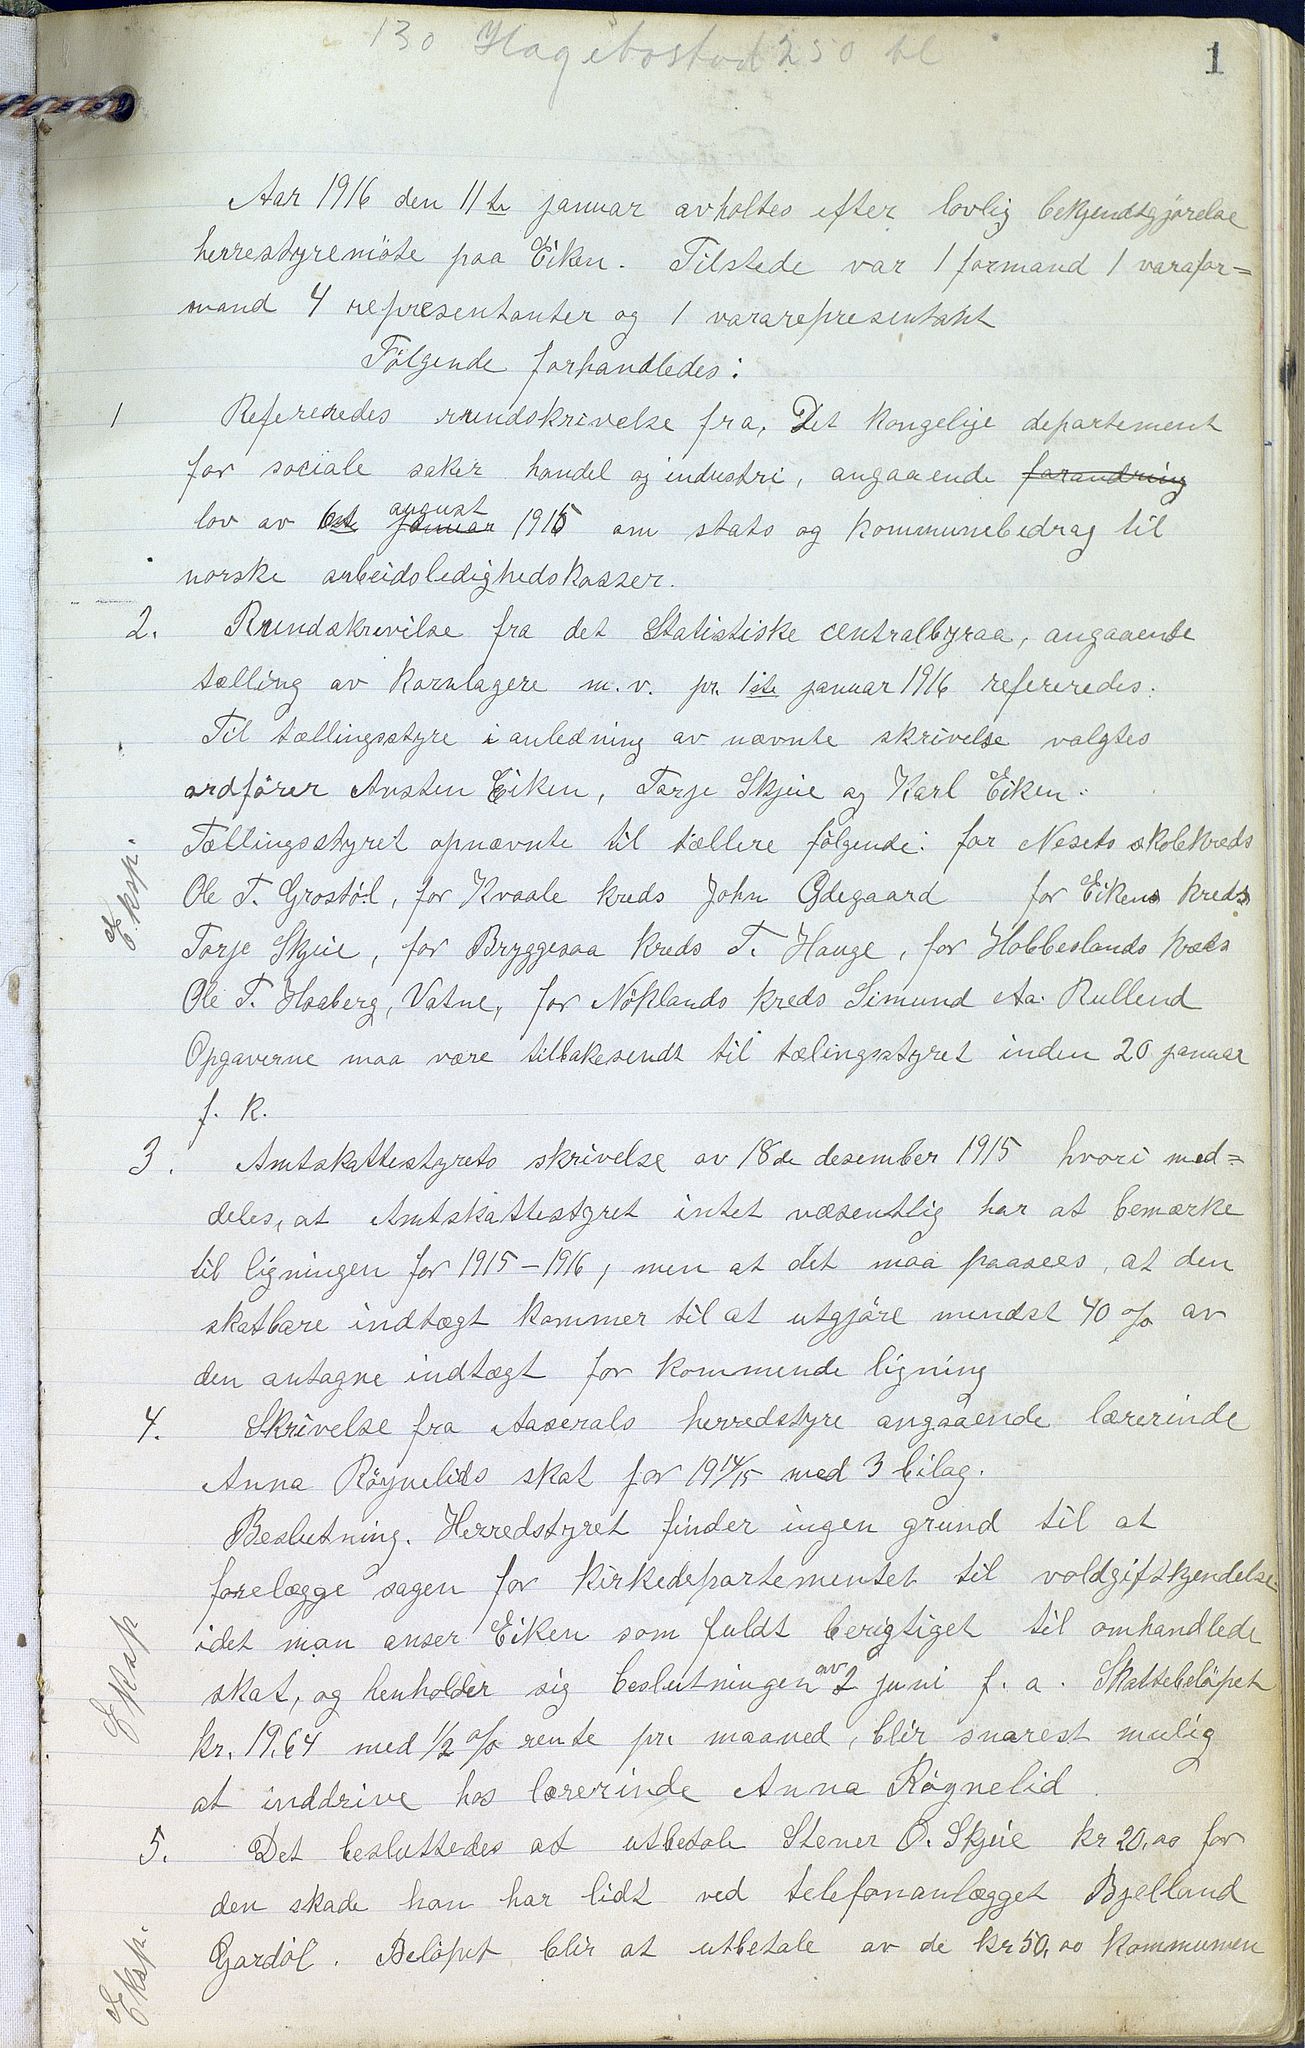 130 Hægebostad 250 bl
1
Aar 1916 den 11te januar avholtes efter lovlig bekjendtgjørelse
herrestyremöte paa Eiken. Tilstede var 1 formand 1 varafor=
mand 4 representanter og 1 vararepresentant
Fölgende forhandledes:
1 Refereredes rundskrivelse fra, Det kongelige departement
for sociale saker handel og industri, angaaende forandring
august
lov av 6te januar 1915 om stats og kommunebedrag til
norske arbeidsledighedskasser.
2. Rundskrivilse fra det Statistiske centralbyraa, angaaende
tælling av kornlagere m.v. pr. 1ste januar 1916 refereredes.
Til tællingsstyre i anledning av nævnte skrivelse valgtes
ordförer Austen Eiken, Tarje Skjeie og Karl Eiken.
Tællingsstyret opnævnte til tællere fölgende: for Nesets skolekreds
Eksp.
Ole T. Grostöl, for Kvaale kreds John Ødegaard for Eikens kreds
Tarje Skjeie, for Bryggesaa kreds T. Hauge, for Hobbeslands kreds
Ole T. Haaberg, Vatne, for Nöklands kreds Simund Aa. Rullend
Opgaverne maa være tilbakesendt til tælingsstyret inden 20 januar
f. k.
3. Amtskattestyrets skrivelse av 18de desember 1915 hvori med=
deles, at Amtskattestyret intet væsentlig har at bemærke
til ligningen for 1915-1916, men at det maa paasees, at den
skatbare indtægt kommer til at utgjöre mindst 40 o/o av
den antagne indtægt for kommende ligning
4. Skrivelse fra Aaserals herredstyre angaaende lærerinde
Anna Röynelids skat for 1914/15 med 3 bilag.
Beslutning. Herredstyret finder ingen grund til at
forelægge sagen for kirkedepartementet til voldgiftskjendelse
idet man anser Eiken som fuldt berigtiget til omhandlede
Eksp
av
skat, og henholder sig beslutningen 2 juni f. a. Skattebelöpet
kr. 19,64 med 1/2 o/o rente pr. maaned, blir snarest mulig
at inddrive hos lærerinde Anna Röynelid.
5. Det besluttedes at utbetale Stener O. Skjeie kr 20,00 for
den skade han har lidt ved telefonanlægget Bjelland
Gardöl. Belöpet blir at utbetale av de kr 50,00 kommunen
Eksp.